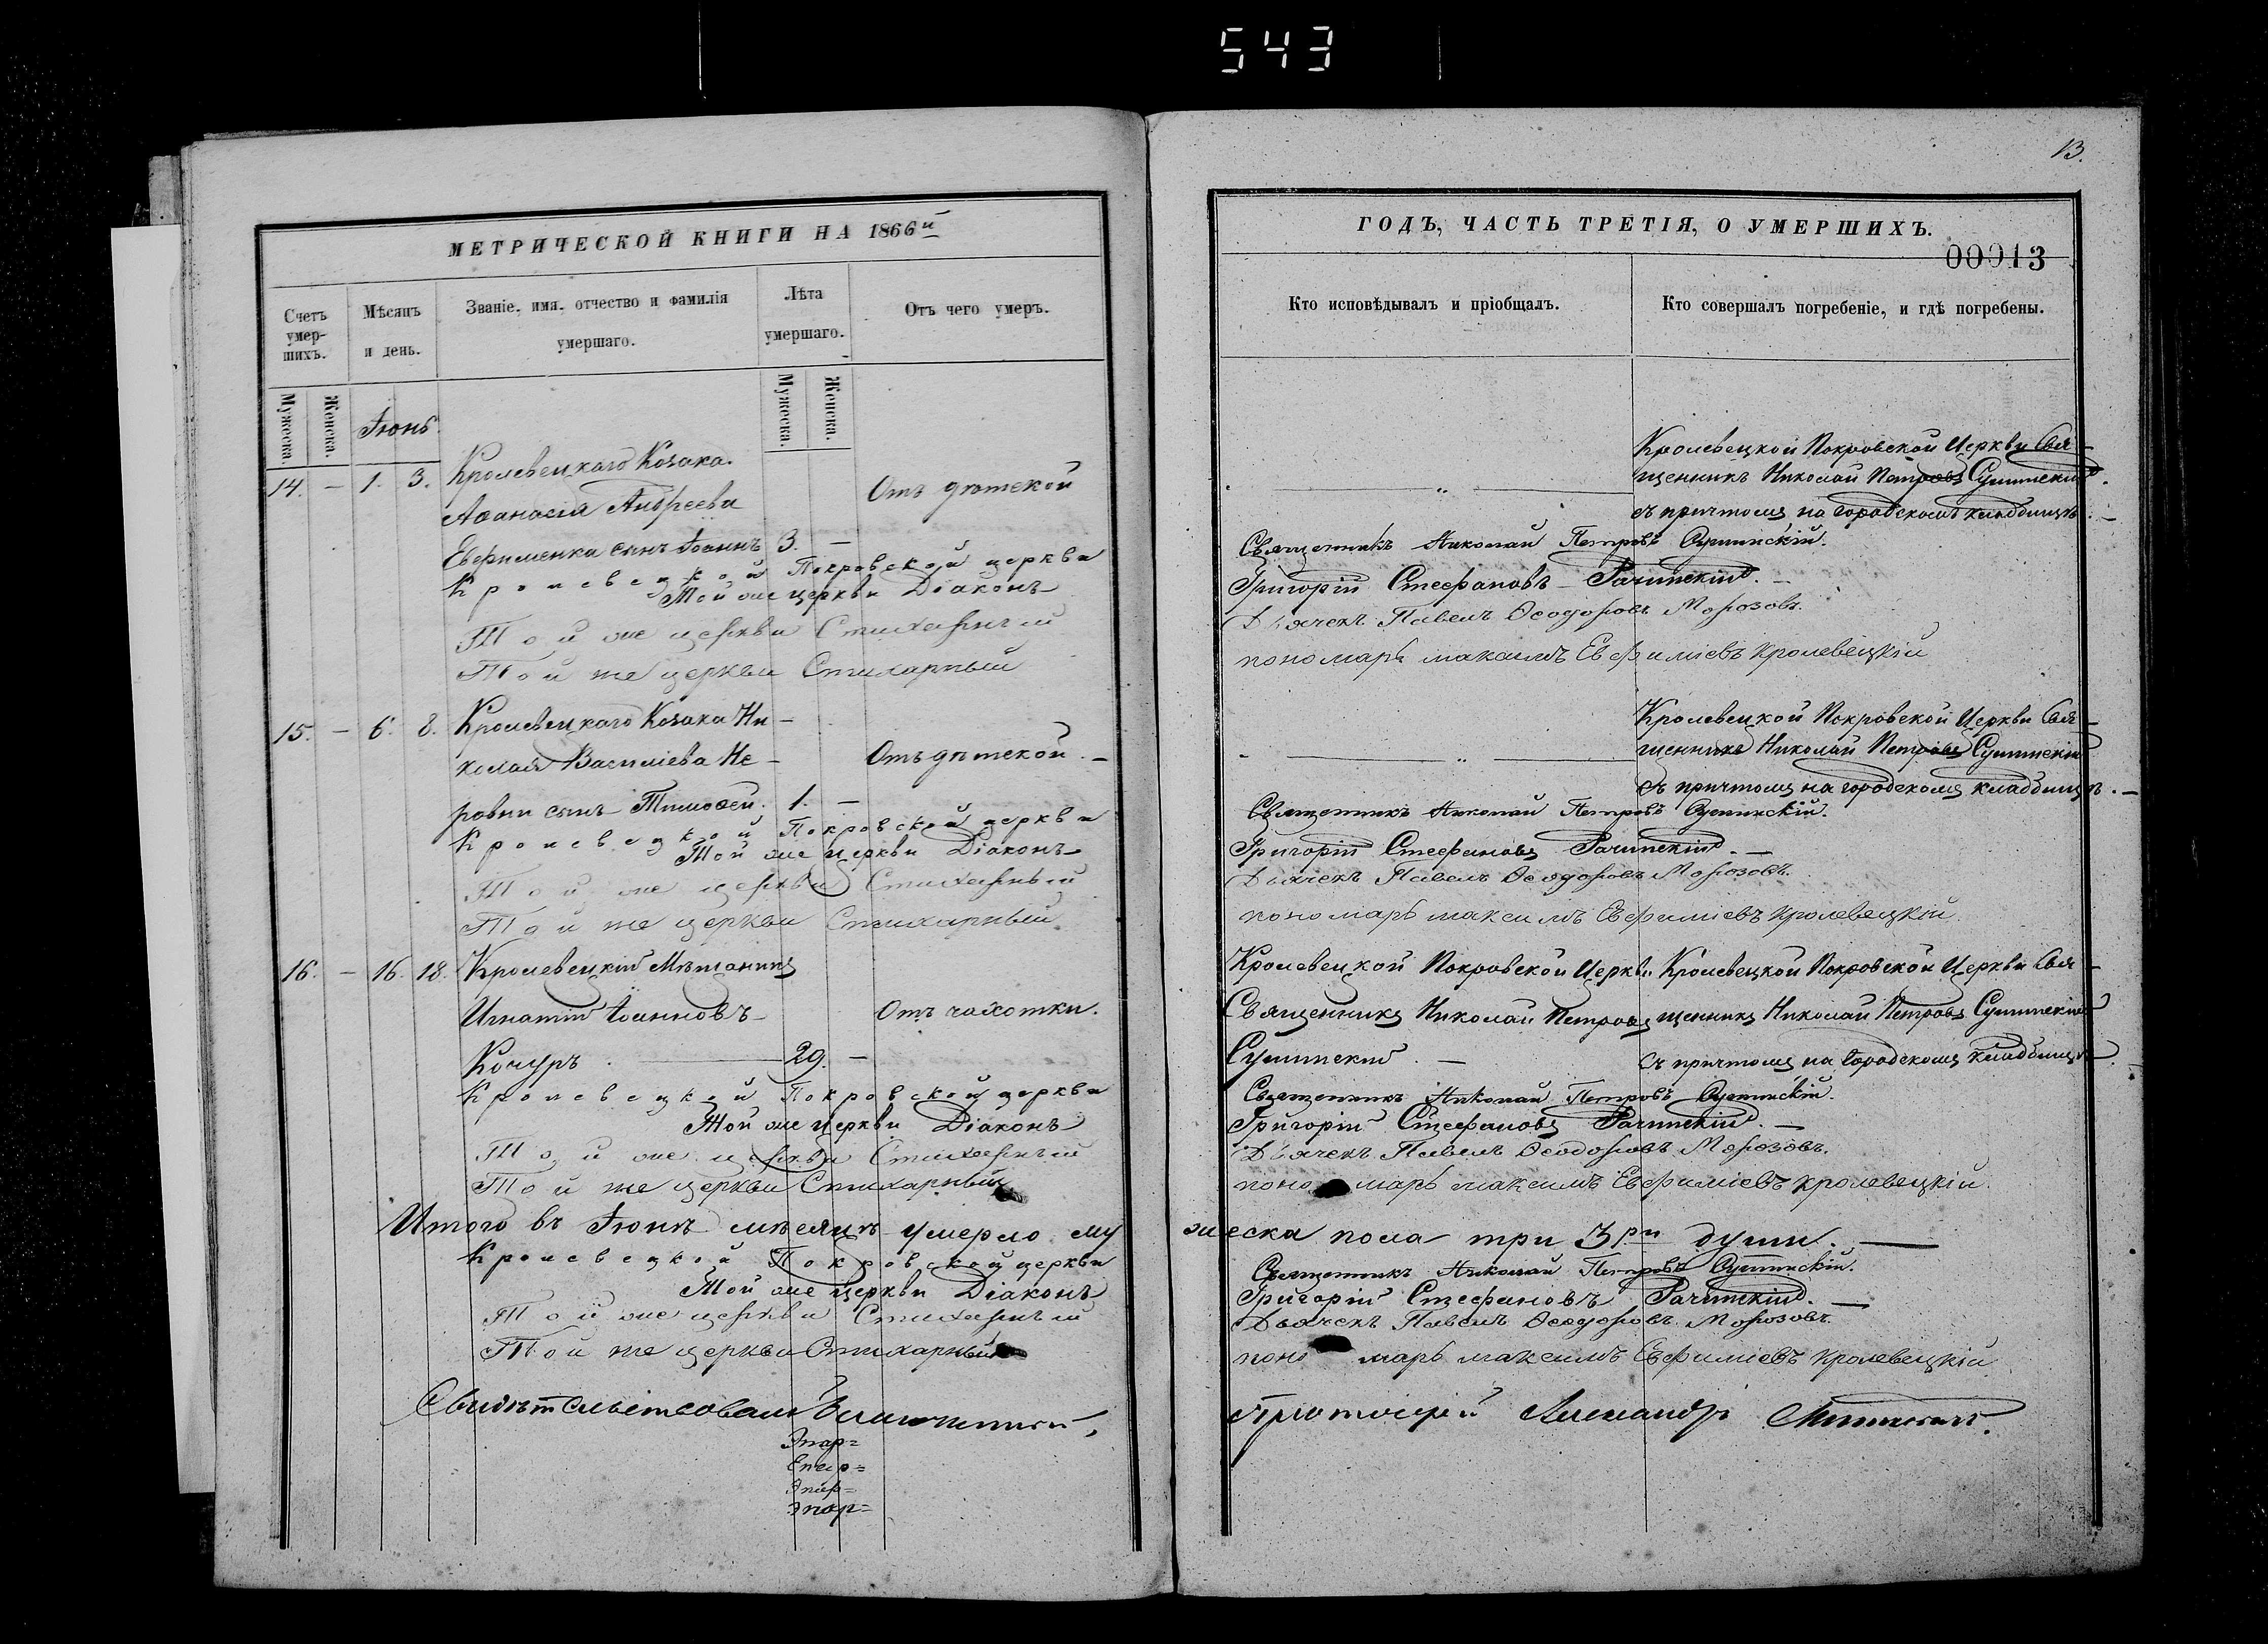 543
13.
МЕТРИЧЕСКОЙ КНИГИ НА 1866й
Счетъ умер-шихъ.
Мѣсяцъ и день.
Званіе, имя, отчество и фамилія умершаго.
Лѣта умершаго.
Отъ чего умеръ.
Мужеска.
Женска.
Мужеска.
Женска.
Іюнь.
14. — 1. 3. Кролевецкаго Козака
Аѳанасія Андреева
Отъ дѣтской
Евфименка сынъ Іоаннъ 3. —
Кролевецкой Покровской церкви
Той же церкви Діаконъ
Той же церкви Стихарный
Той же церкви Стихарный
15. — 6. 8. Кролевецкаго Козака Ни-
колая Василіева Не-
Отъ дѣтской. —
ровни сынъ Тимоѳей. 1. —
Кролевецкой Покровской церкви
Той же церкви Діаконъ
Той же церкви Стихарный
Той же церкви Стихарный
16. — 16. 18. Кролевецкій Мѣщанинъ
Игнатій Іоанновъ
Отъ чахотки.
Кочуръ. — 29. —
Кролевецкой Покровской церкви
Той же церкви Діаконъ
Той же церкви Стихарный
Той же церкви Стихарный
Итого въ Іюнѣ мѣсяцѣ умерло му
Кролевецкой Покровской церкви
Той же церкви Діаконъ
Той же церкви Стихарный
Той же церкви Стихарный
Свидѣтельствовалъ Благочинный,
Эпар=
Епар=
Эпар=
Эпар=
ГОДЪ, ЧАСТЬ ТРЕТІЯ, О УМЕРШИХЪ.
00013
Кто исповѣдывалъ и пріобщалъ.
Кто совершалъ погребеніе, и гдѣ погребены.
Кролевецкой Покровской Церкви Свя-
щенникъ Николай Петровъ Сушинскій
съ причтомъ на городскомъ кладбищѣ. —
Священникъ Николай Петровъ Сушинскій.
Григорій Стефановъ Рачинскій. —
Дьячекъ Павелъ Ѳеодоровъ Морозовъ.
пономарь максимъ Евфиміевъ кролевецкій
Кролевецкой Покровской Церкви Свя-
щенникъ Николай Петровъ Сушинскій
съ причтомъ на городскомъ кладбищѣ. —
Священникъ Николай Петровъ Сушинскій.
Григорій Стефановъ Рачинскій. —
Дьячекъ Павелъ Ѳеодоровъ Морозовъ.
пономарь максимъ Евфиміевъ кролевецкій
Кролевецкой Покровской Церкви
Священникъ Николай Петровъ
Сушинскій. —
Кролевецкой Покровской Церкви Свя-
щенникъ Николай Петровъ Сушинскій
съ причтомъ на городскомъ кладбищѣ
Священникъ Николай Петровъ Сушинскій.
Григорій Стефановъ Рачинскій. —
Дьячекъ Павелъ Ѳеодоровъ Морозовъ.
пономарь максимъ Евфиміевъ кролевецкій
жеска пола три 3ри души. —
Священникъ Николай Петровъ Сушинскій.
Григорій Стефановъ Рачинскій. —
Дьячекъ Павелъ Ѳеодоровъ Морозовъ.
пономарь максимъ Евфиміевъ кролевецкій
Протоіерей Александръ